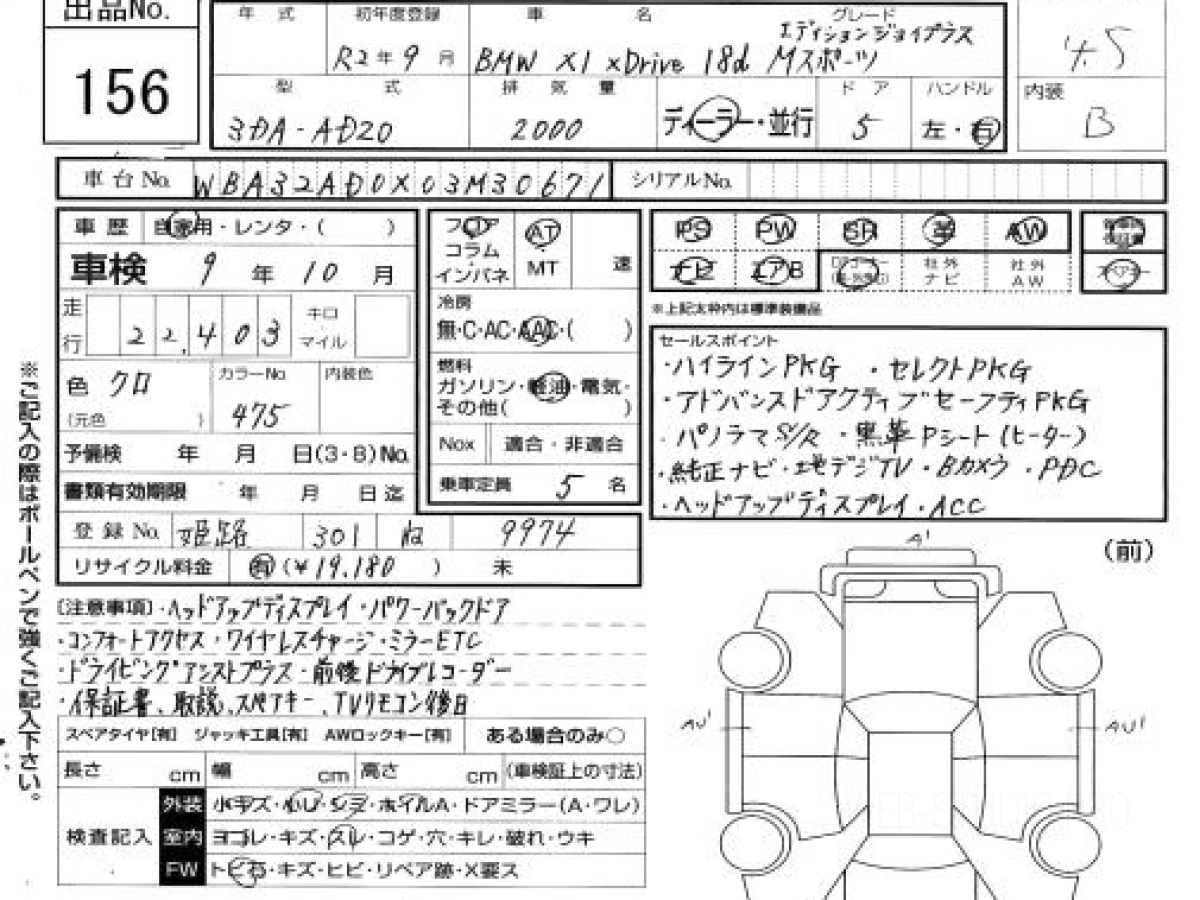 出品No.
156
年 式 初年度登録 車 名 グレード
エディションジョイプラス
R2年9月 BMW X1 xDrive 18d Mスポーツ
4.5
型 式 排 気 量 ディーラー・並行 ドア ハンドル 内装
3DA-AD20 2000 5 左・右 B
車台No. WBA32AD0X03M30671 シリアルNo.
車歴 自家用・レンタ・( )
車検 9年10月
走行 22,403 キロ マイル
色 クロ カラーNo. 475 内装色
(元色 )
予備検 年 月 日(3・8)No.
書類有効期限 年 月 日迄
登録No. 姫路 301 ね 9974
リサイクル料金 有(¥19,180 ) 未
フロア コラム インパネ AT MT 速
冷房
無・C・AC・AAC・( )
燃料
ガソリン・軽油・電気・
その他( )
Nox 適合・非適合
乗車定員 5名
PS PW SR 革 AW
ナビ エアB 社外ナビ 社外AW スペアキー
※上記太枠内は標準装備品
セールスポイント
・ハイラインPKG ・セレクトPKG
・アドバンスドアクティブセーフティPKG
・パノラマS/R ・黒革Pシート(ヒーター)
・純正ナビ・地デジTV・Bカメラ・PDC
・ヘッドアップディスプレイ・ACC
[注意事項]・ヘッドアップディスプレイ・パワーバックドア
・コンフォートアクセス・ワイヤレスチャージ・ミラーETC
・ドライビングアシストプラス・前後ドライブレコーダー
・保証書、取説、スペアキー、TVリモコン後日
スペアタイヤ[有] ジャッキ工具[有] AWロックキー[有] ある場合のみ○
長さ cm 幅 cm 高さ cm (車検証上の寸法)
検査記入
外装 小キズ・小凹・シミ・ホイルA・ドアミラー(A・ワレ)
室内 ヨゴレ・キズ・スレ・コゲ・穴・キレ・破れ・ウキ
FW トビ石・キズ・ヒビ・リペア跡・X要ス
※ご記入の際はボールペンで強くご記入下さい。
A1
(前)
AU1
AU1